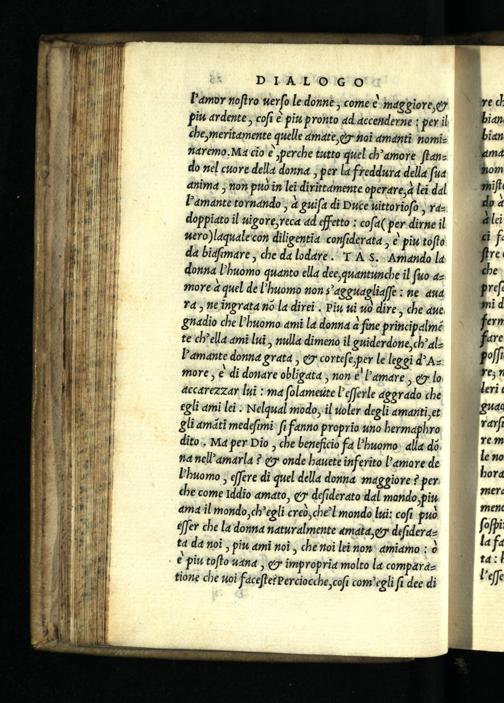 DIALOGO
l'amor nostro uerso le donne, come è maggiore, &
piu ardente, cosi è piu pronto ad accenderne: per il
che, meritamente quelle amate, & noi amanti nomi=
naremo. Ma cio è, perche tutto quel ch'amore stan=
do nel cuore della donna, per la freddura della sua
anima, non può in lei dirittamente operare, à lei dal
l'amante tornando, à guisa di Duce uittorioso, ra=
doppiato il uigore, reca ad effetto: cosa (per dirne il
uero) laquale con diligentia considerata, è piu tosto
da biasmare, che da lodare. TAS. Amando la
donna l'huomo quanto ella dee, quantunche il suo a=
more à quel de l'huomo non s'agguagliasse: ne aua
ra, ne ingrata nõ la direi. Piu ui uò dire, che aue
gnadio che l'huomo ami la donna à fine principalmẽ
te ch'ella ami lui, nulla dimeno il guiderdone, ch'al=
l'amante donna grata, & cortese, per le leggi d'A=
more, è di donare obligata, non è l'amare, & lo
accarezzar lui: ma solamente l'esserle aggrado che
egli ami lei: Nelqual modo, il uoler degli amanti, et
gli amãti medesimi si fanno proprio uno hermaphro
dito. Ma per Dio, che beneficio fa l'huomo alla dõ
na nell'amarla? & onde hauete inferito l'amore de
l'huomo, essere di quel della donna maggiore? per
che come Iddio amato, & desiderato dal mondo, piu
ama il mondo, ch'egli creò, che'l mondo lui: cosi può
esser che la donna naturalmente amata, & desidera=
ta da noi, piu ami noi, che noi lei non amiamo: ò
è piu tosto uana, & impropria molto la compara=
tione che uoi faceste? Perciocche, cosi com'egli si dee di